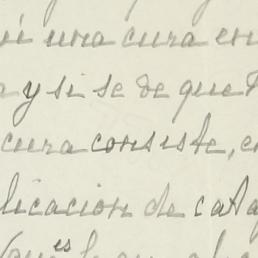 una cura en
y si se de que
cura consiste, e
licacion de cata